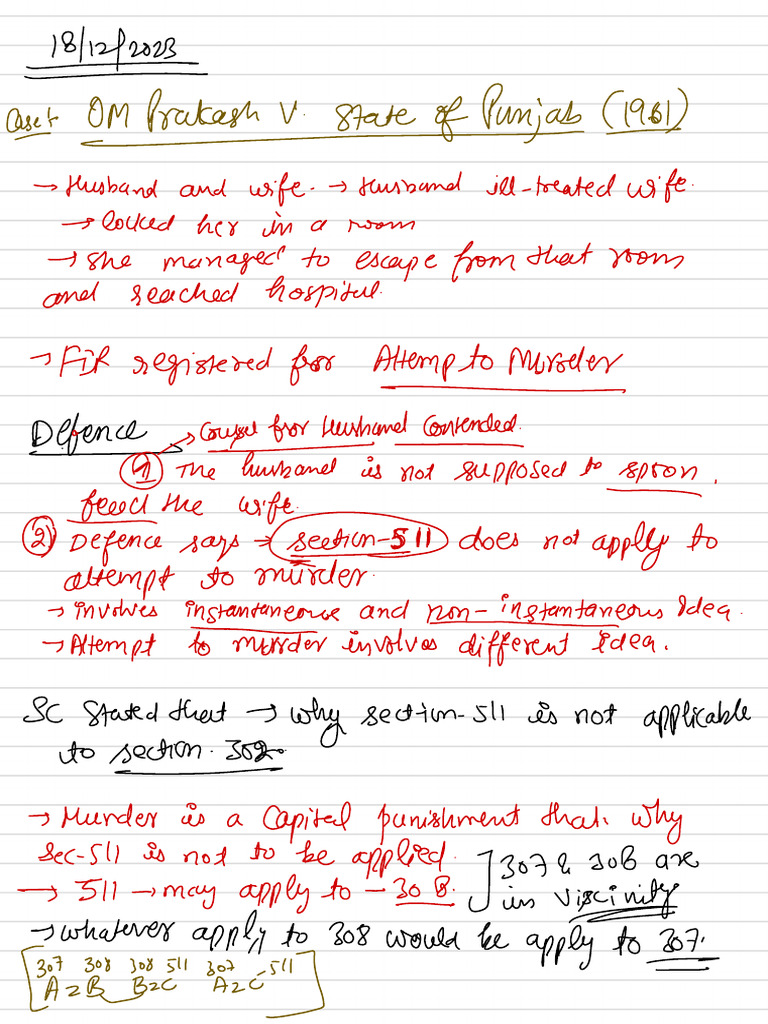 18/12/2023
Case:- OM Prakash V. State of Punjab (1961)
→ Husband and wife. → Husband ill-treated wife.
→ locked her in a room
→ She managed to escape from that room
and reached hospital.
→ FIR registered for Attemp to Murder
Defence → Counsel for Husband Contended.
① The husband is not supposed to spoon,
feed the wife.
② Defence says → section-511 does not apply to
attempt to murder.
→ involves instantaneous and non-instantaneous Idea.
→ Attempt to murder involves different Idea.
SC Stated that → why section-511 is not applicable
to section. 302.
→ Murder is a Capital punishment that. why
Sec-511 is not to be applied.
→ 511 → may apply to - 308.
] 307 & 308 are
in Viscinity
→ whatever apply to 308 would be apply to 307.
307 308 308 511 307 -511
A=B B=C A=C